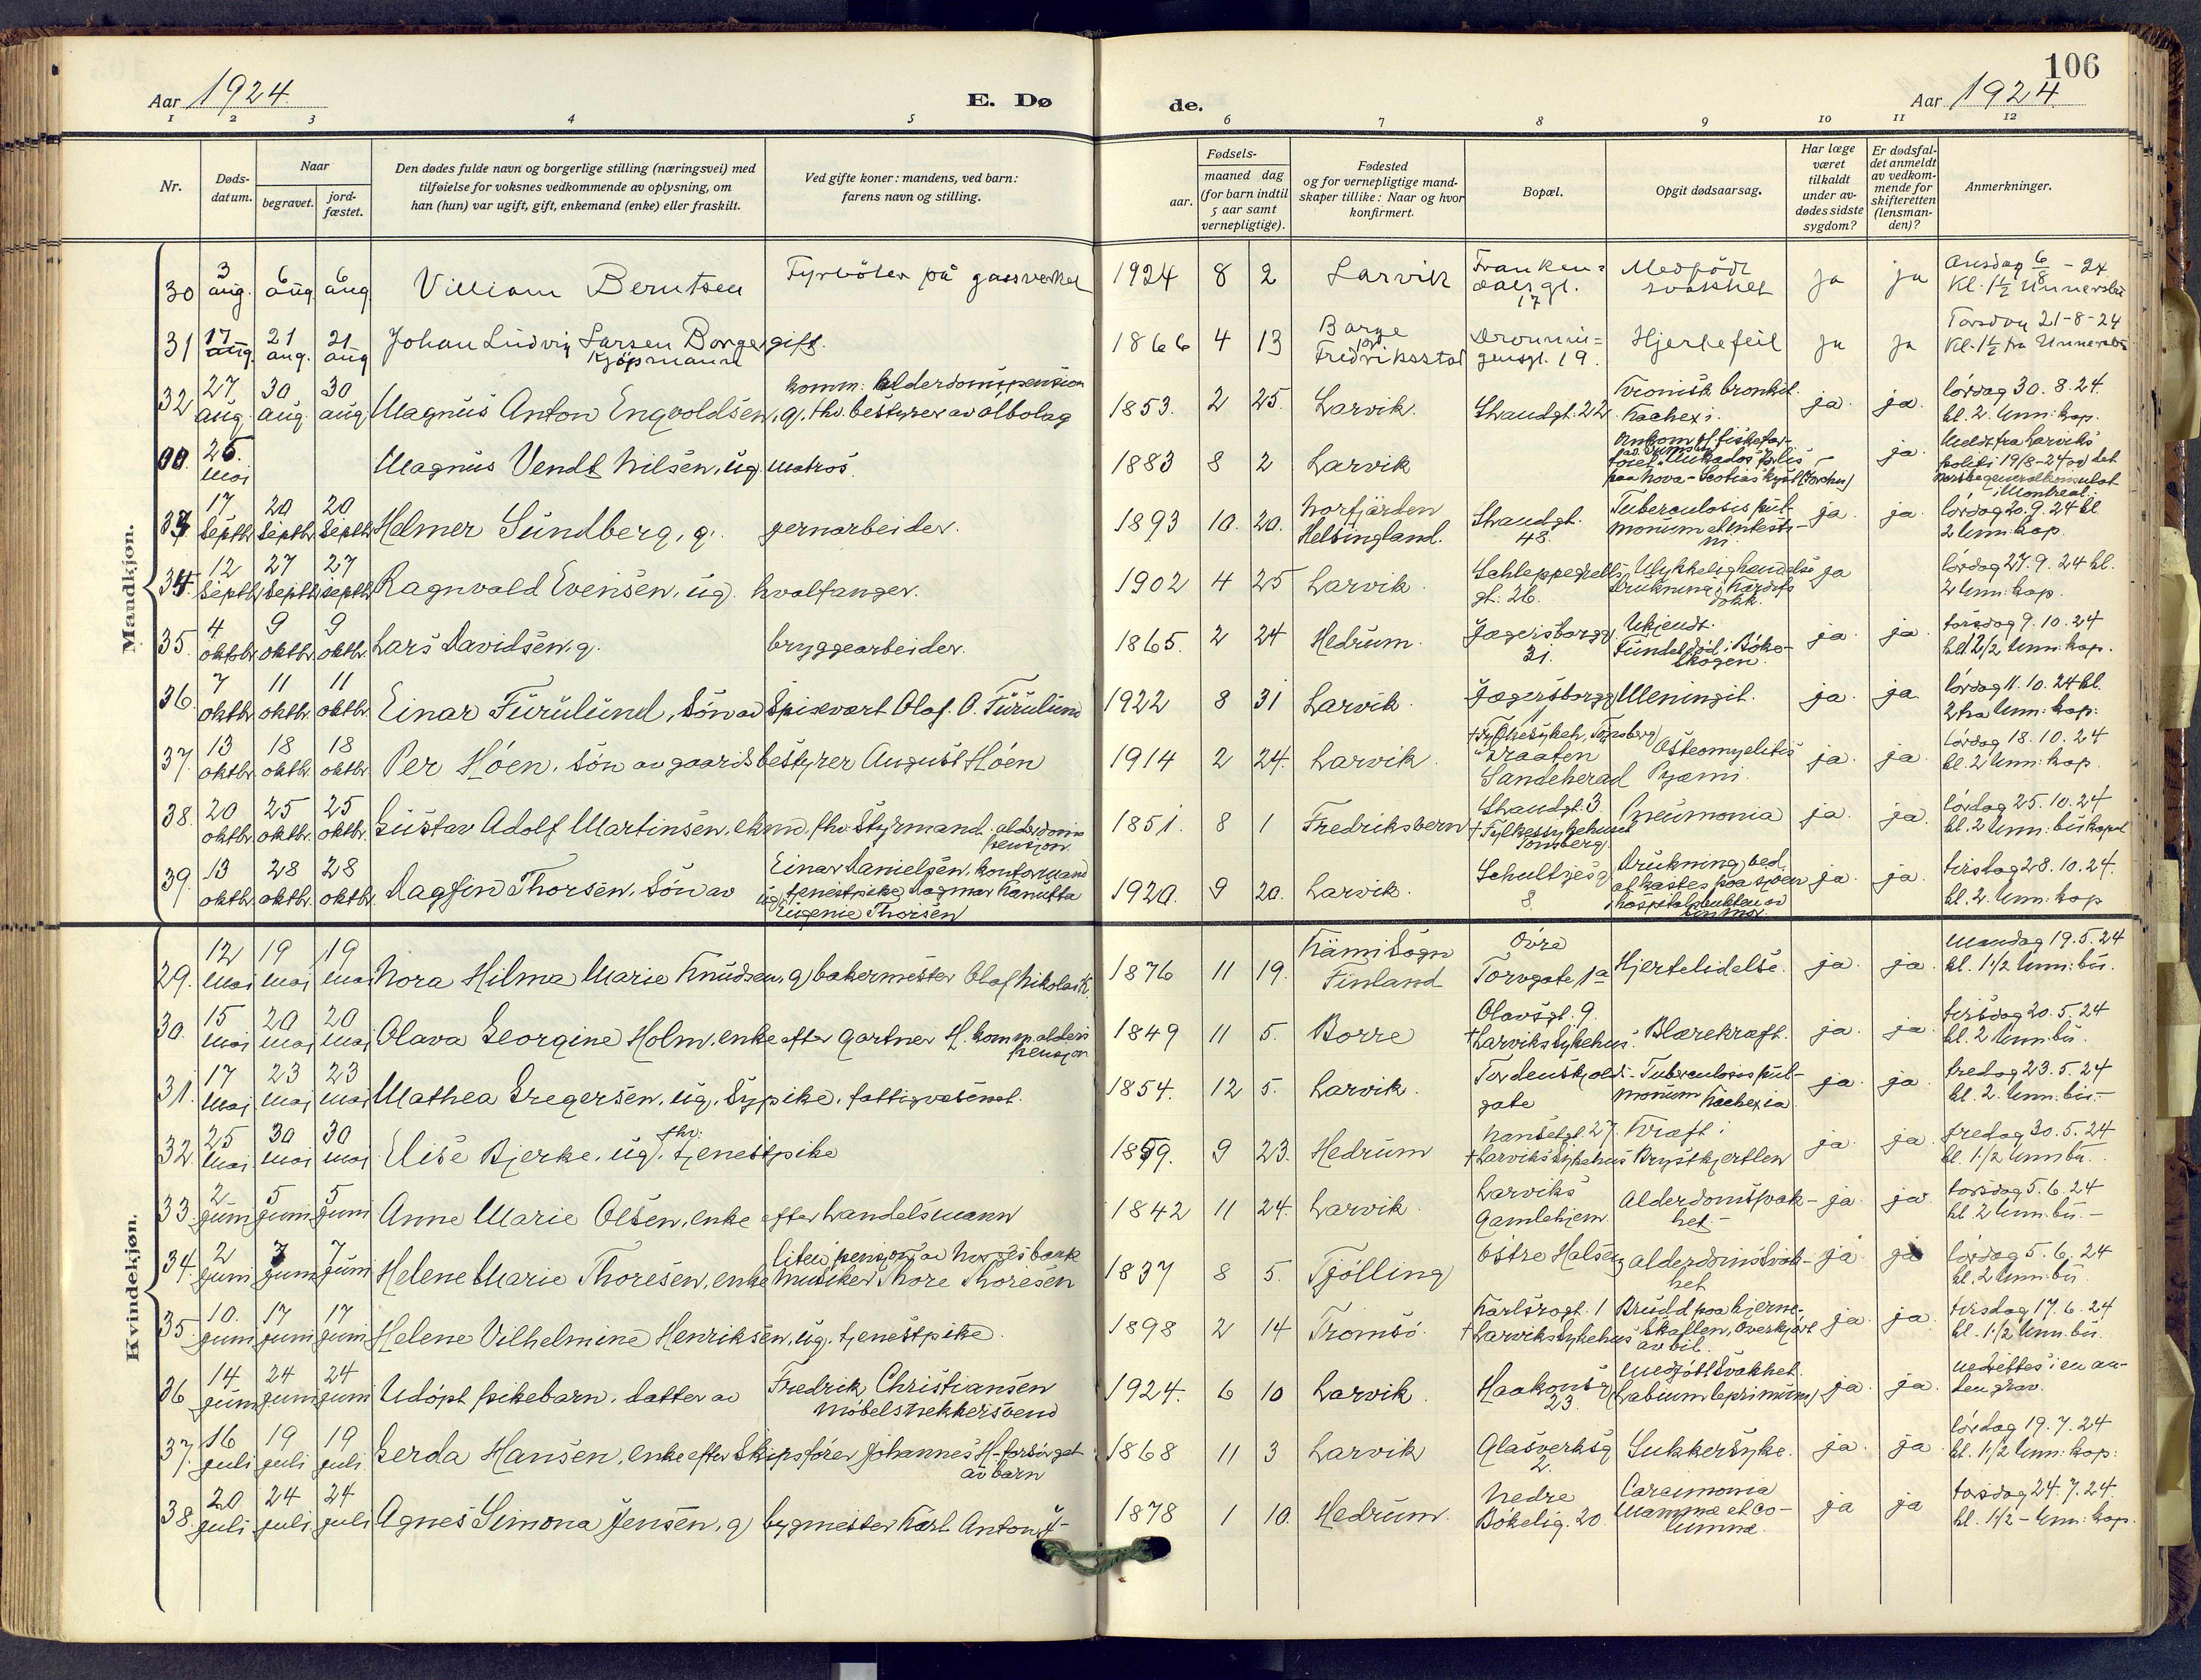 106
Aar 1924. E. Dø de. Aar 1924
1 2 3 4 5 6 7 8 9 10 11 12
Nr. Døds-datum. Naar begravet. jord-fæstet. Den dødes fulde navn og borgerlige stilling (næringsvei) med tilføielse for voksnes vedkommende av oplysning, om han (hun) var ugift, gift, enkemand (enke) eller fraskilt. Ved gifte koner: mandens, ved barn: farens navn og stilling. Fødsels- aar. maaned dag (for barn indtil 5 aar samt vernepligtige). Fødested og for vernepligtige mandskaper tillike: Naar og hvor konfirmert. Bopæl. Opgit dødsaarsag. Har læge været tilkaldt under avdødes sidste sygdom? Er dødsfaldet anmeldt av vedkommende for skifteretten (lensmanden)? Anmerkninger.
Mandkjøn.
30 3 aug. 6 aug. 6 aug. Villiam Berntsen Fyrbøter på gassverket 1924 8 2 Larvik Frankendalsgt. 17 Medfödt svakhet ja ja Onsdag 6/8 - 24 Kl. 1 1/2
31 17 aug. 21 aug. 21 aug Johan Ludvig Larsen Borge, gift. Kjöpmann 1866 4 13 Borge pr. Fredriksstad Dronningensgt. 19. Hjertefeil ja ja Torsdag 21-8-24 Kl. 1 1/2 fra
32 27 aug. 30 aug. 30 aug. Magnus Anton Engvoldsen, g. fhv. bestyrer av ølbolag komm: alderdomspension 1853. 2 25. Larvik. Strandgt. 22 Kronisk bronkit. Kachexi. ja. ja. lördag 30. 8. 24. kl. 2. Unn: kap.
00. 26. mai Magnus Vendt Nilsen, ug. matros. 1883 8 2 Larvik Omkom paa Nova-Scotias kyst ja. Meldt fra Larviks politi 19/8-24 av det norske generalkonsulat i Montreal.
33 17 septbr 20 septbr 20 septbr Helmer Sundberg, g. jernarbeider. 1893 10. 20. Norfjärden Helsingland. Strandgt. 48. Tuberculosis pulmonum et intestini ja. ja. lördag 20. 9. 24 kl 2 Unn: kap.
34. 12 septbr 27 septbr 27 septbr Ragnvald Evensen, ug. hvalfanger. 1902 4 25 Larvik. Schleppegrells gt. 26. Ulykkelig hændelse Drukning i dokk. ja lördag 27. 9. 24 kl. 2 Unn: kap.
35. 4 oktobr 9 oktbr. 9 oktbr. Lars Davidsen, g. bryggearbeider. 1865. 2 24 Hedrum. Jegersborgg. 31. Ukjendt. Fundet död i Bökeskogen. ja. ja. torsdag 9. 10. 24 kl 2 1/2 Unn: kap.
36. 7 oktbr. 11 oktbr. 11 oktbr. Einar Furulund, Sön av Spisevært Olaf. O. Furulund 1922 8 31 Larvik. Jegersborgg 1 Meningit. ja. ja lördag 11. 10. 24 kl. 2 fra Unn: kap:
37. 13 oktbr. 18 oktbr. 18 oktbr. Per Höen. Sön av gaardsbestyrer August Höen 1914 2 24. Larvik. †Fylkesykeh, Tönsberg "Braaten" Sandeherad Osteomyelitis Pyæmi. ja. ja. lördag 18. 10. 24 kl. 2 Unn: kap.
38. 20 oktbr. 25 oktbr. 25 oktbr. Gustav Adolf Martinsen, ekm. fhv. Styrmand. alderdoms pensjon. 1851. 8 1 Fredriksvern Strandgt. 3. †Fylkessykehuset Tönsberg Pneumonia ja ja. lördag 25. 10. 24 kl. 2 Unn: bukapel
39. 13 oktbr. 28 oktbr. 28 oktbr. Dagfin Thorsen, Sön av Einar Danielsen, kontormand ug. tjenestpike Dagmar Kanutta Eugenie Thorsen 1920. 9 20. Larvik. Schultzesg 8. Drukning ved at kastes paa sjöen i hospitalsbukten av sin mor ja. ja. tirsdag 28. 10. 24. kl. 2. Unn: kap
Kvindekjøn.
29. 12 mai 19 mai 19 mai Nora Hilma Marie Knudsen, g) bakermester Olaf Nikolai K. 1876 11 19. Kämi Sogn Finland Övre Torvgate 1a Hjertelidelse. ja. ja. Mandag 19. 5. 24 kl. 1 1/2 Unn: bu.
30. 15 mai 20 mai 20 mai Olava Georgine Holm, enke efter gartner H. komm. alders pensjon 1849 11 5. Borre Olavsgt. 9. †Larviks Sykehus. Blærekræft. ja. ja. tirsdag 20. 5. 24 kl. 2 Unn: bu.
31. 17 mai 23 mai 23 mai Mathea Gregersen, ug, Sypike, fattigvæsenet. 1854. 12 5. Larvik. Tordenskjolds-gate Tuberculosis pulmonum Kachexia ja. ja. fredag 23. 5. 24 kl. 2. Unn: bu.-
32. 25 mai 30 mai 30 mai Elise Bjerke, ug. fhv. tjenestpike 1859. 9 23. Hedrum Nansetgt. 27. †Larviks Sykehus Kræft i Brystkjertlen ja. ja. fredag 30. 5. 24 kl. 1 1/2 Unn bu.
33. 2 juni 5 juni 5 juni Anne Marie Olsen, enke efter handelsmann 1842 11 24. Larvik. Larviks Gamlehjem Alderdomssvakhet.- ja. ja. torsdag 5. 6. 24 kl 2 Unn: bu.-
34. 2 juni 7 juni 7 juni Helene Marie Thoresen, enke musiker Thore Thoresen liten pension av Norges bank 1837 8 5. Tjölling Östre Halsen Alderdomssvakhet ja. ja. lördag 5. 6. 24 kl. 2 Unn: bu.
35. 10. juni 17 juni 17 juni Helene Vilhelmine Henriksen, ug. tjenestpike. 1898 2 14 Tromsö. Karlsrogt. 1 †Larviks Sykehus Brudd paa hjerneskallen. Överkjört av bil. ja. ja. tirsdag 17. 6. 24 kl. 1 1/2 Unn. bu.
36 14 juni 24 juni 24 juni Udöpt pikebarn. datter av Fredrik Christiansen Möbelsnekkersvend 1924. 6 10 Larvik. Haakonsg 23. Medfött Svakhet. ja. ja. nedsettes i en anden grav.
37. 16 juli 19 juli 19 juli. Gerda Hansen, enke efter Skipsförer Johannes H-forsörget av barn 1868 11 3 Larvik Glasverksg 2. Sukkersyke. ja. ja. lördag 19. 7. 24 kl. 1 1/2 Unn: kap:
38. 20 juli 24 juli 24 juli Agnes Simona Jensen, g) bygmester Karl Anton J- 1878 1 10. Hedrum. Nedre Bökelig. 20 Mammæ et ja ja torsdag 24. 7. 24. kl. 1 1/2 - Unn: kap.